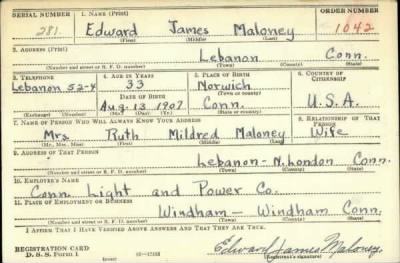 SERIAL NUMBER 1. NAME (Print) ORDER NUMBER
281 Edward James Maloney 1042
(First) (Middle) (Last)
2. ADDRESS (Print)
Lebanon Conn.
(Number and street or R. F. D. number) (Town) (County) (State)
3. TELEPHONE 4. AGE IN YEARS 5. PLACE OF BIRTH 6. COUNTRY OF CITIZENSHIP
Lebanon 52-4 33 Norwich
DATE OF BIRTH (Town or county)
Aug. 13 1907 Conn. U.S.A.
(Exchange) (Number) (Mo.) (Day) (Yr.) (State or country)
7. NAME OF PERSON WHO WILL ALWAYS KNOW YOUR ADDRESS 8. RELATIONSHIP OF THAT PERSON
Mrs. Ruth Mildred Maloney Wife
(Mr., Mrs., Miss) (First) (Middle) (Last)
9. ADDRESS OF THAT PERSON
Lebanon - N. London Conn.
(Number and street or R. F. D. number) (Town) (County) (State)
10. EMPLOYER'S NAME
Conn. Light and Power Co.
11. PLACE OF EMPLOYMENT OR BUSINESS
Windham - Windham Conn.
(Number and street or R. F. D. number) (Town) (County) (State)
I AFFIRM THAT I HAVE VERIFIED ABOVE ANSWERS AND THAT THEY ARE TRUE.
REGISTRATION CARD
D. S. S. Form 1 Edward James Maloney
(Registrant's signature)